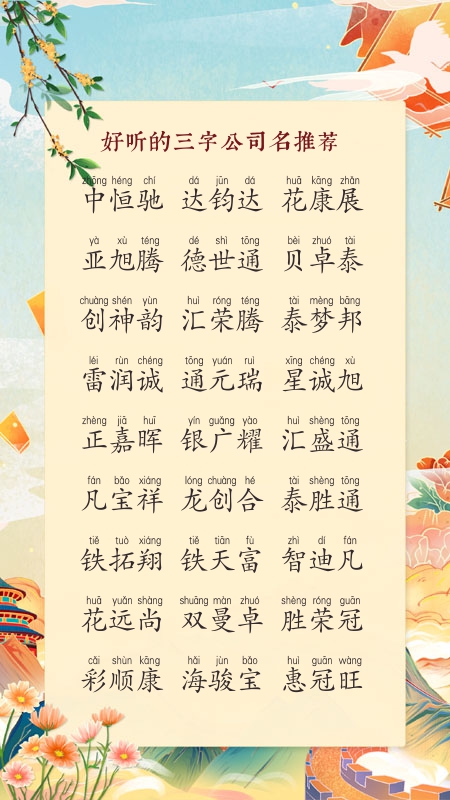 好听的三字公司名推荐
zhōng héng chí dá jūn dá huā kāng zhǎn
中恒驰 达钧达 花康展
yà xù téng dé shì tōng bèi zhuó tài
亚旭腾 德世通 贝卓泰
chuàng shén yùn huì róng téng tài mèng bāng
创神韵 汇荣腾 泰梦邦
léi rùn chéng tōng yuán ruì xīng chéng xù
雷润诚 通元瑞 星诚旭
zhèng jiā huī yín guǎng yào huì shèng tōng
正嘉晖 银广耀 汇盛通
fán bǎo xiáng lóng chuàng hé tài shèng tōng
凡宝祥 龙创合 泰胜通
tiě tuò xiáng tiě tiān fù zhì dí fán
铁拓翔 铁天富 智迪凡
huā yuǎn shàng shuāng màn zhuó shèng róng guān
花远尚 双曼卓 胜荣冠
cǎi shùn kāng hǎi jùn bǎo huì guān wàng
彩顺康 海骏宝 惠冠旺